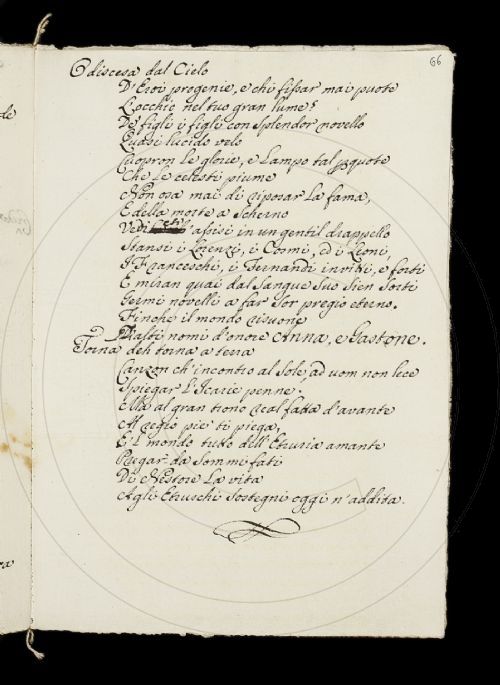 66
O discesa dal Cielo
D'Eroi progenie, e chi fissar mai puote
L'occhio nel tuo gran lume?
De' figli i figli con splendor novello
Quasi lucido velo
Cuopron le glorie, e lampo tal percuote
Che le celesti piume
Non osa mai di riposar la fama,
E della morte a scherno
Vedi assisi in un gentil drappello
Stansi i Lorenzi, i Cosmi, ed i Lioni,
I Franceschi, i Fernandi invitti, e forti
E miran quai dal sangue suo sien sorti
Germi novelli a far lor pregio eterno.
Finche il mondo risuone
D'alti nomi d'onore Anna, e Gastone.
Torna deh torna a terra
Canzon ch'incontro al Sole, ad uom non lece
Spiegar l'Icarie penne.
Ma al gran trono real fatta d'avante
Al regio pie' ti piega,
E 'l mondo tutto dell'Etruria amante
Pregar da sommi fati
Di Nestore la vita
Agli Etruschi sostegni oggi n'addita.